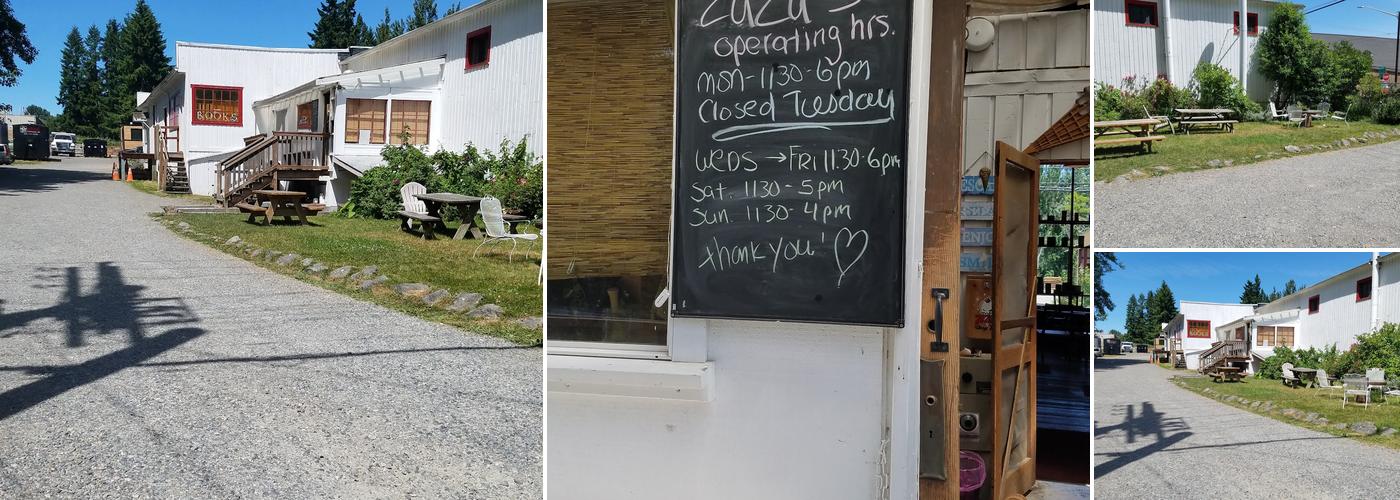 BOOKS
ZuZu's
operating hrs.
mon-1130-6pm
Closed Tuesday
WEDS →FRI 1130-6pm
Sat. 1130-5pm
Sun. 1130-4pm
thank you! ♡
BOOKS